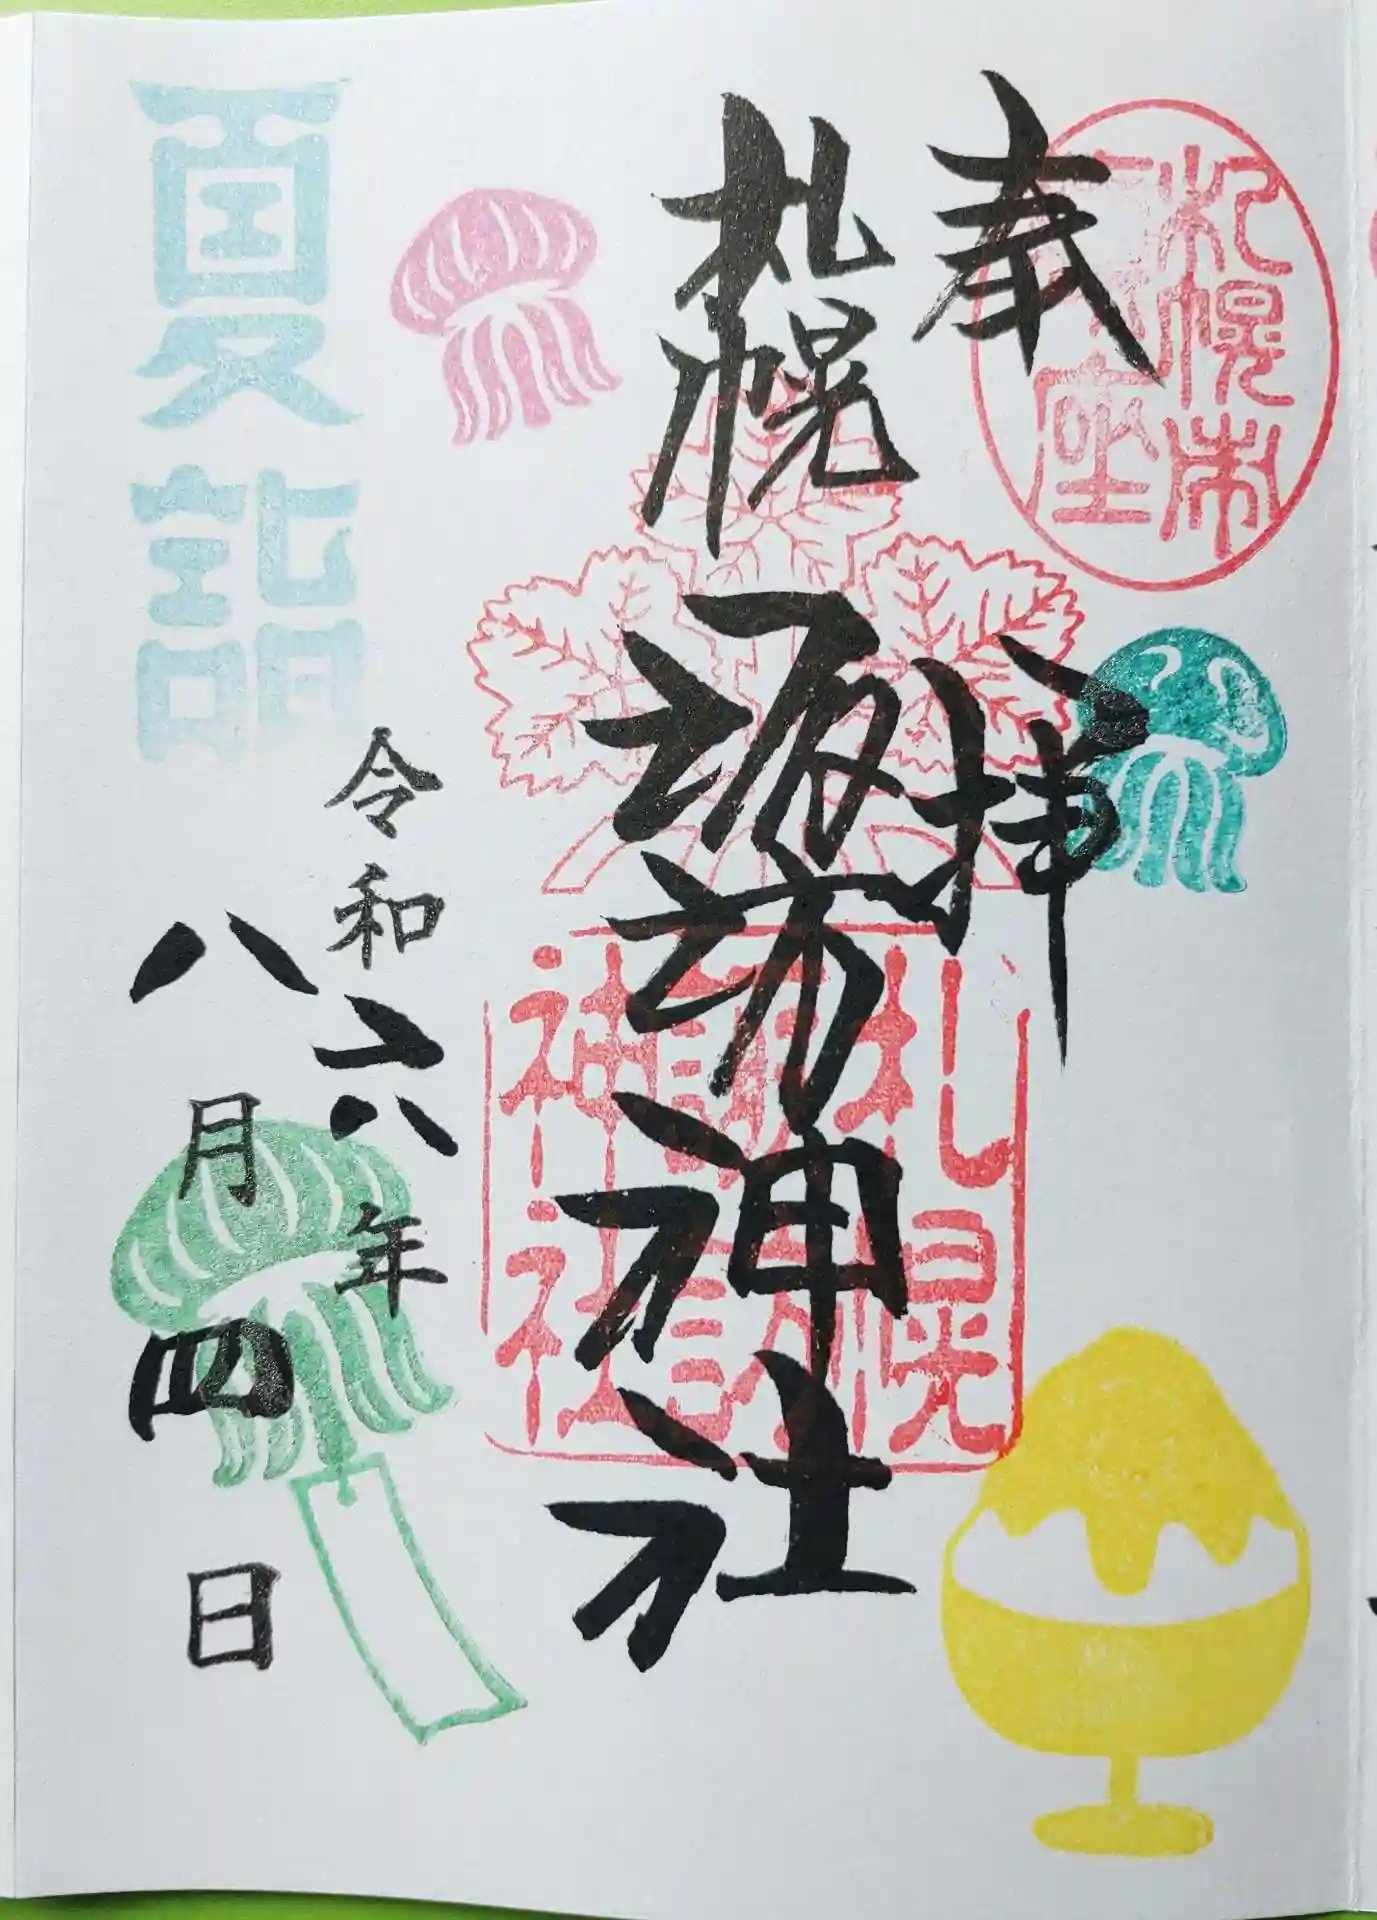 札幌市
奉拝
札幌諏訪神社
札幌
諏訪
神社
令和六年
八月四日
夏詣